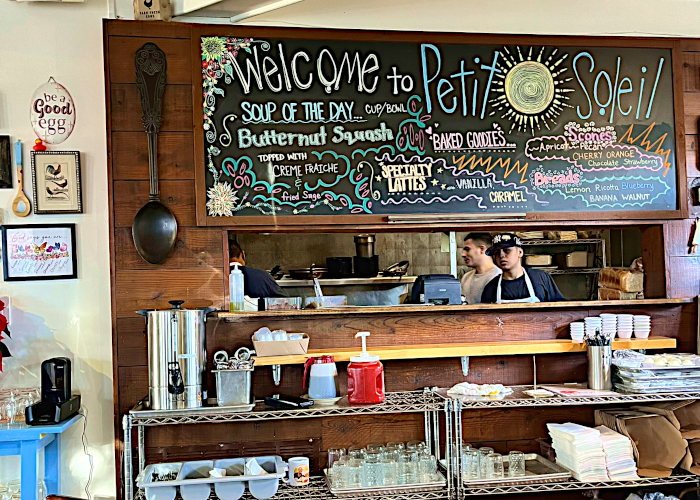 Welcome to Petit Soleil
SOUP OF THE DAY... CUP/BOWL
Butternut Squash
TOPPED WITH
CREME FRAICHE
&
fried Sage
BAKED GOODIES...
SPECIALTY
LATTES
VANILLA
CARAMEL
Scones
Apricot Pecan
CHERRY ORANGE
Chocolate Strawberry
Breads
Lemon Ricotta Blueberry
BANANA WALNUT
be a
Good
egg